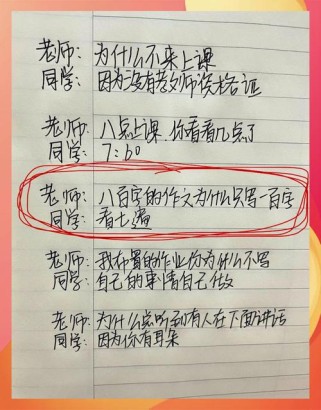 老师：为什么不来上课
同学：因为没有教师资格证
老师：八点上课，你看看几点了
同学：7:60
老师：八百字的作文为什么只写一百字
同学：看七遍
老师：我布置的作业你为什么不写
同学：自己的事情自己做
老师：为什么总听到有人在下面讲话
同学：因为你有耳朵